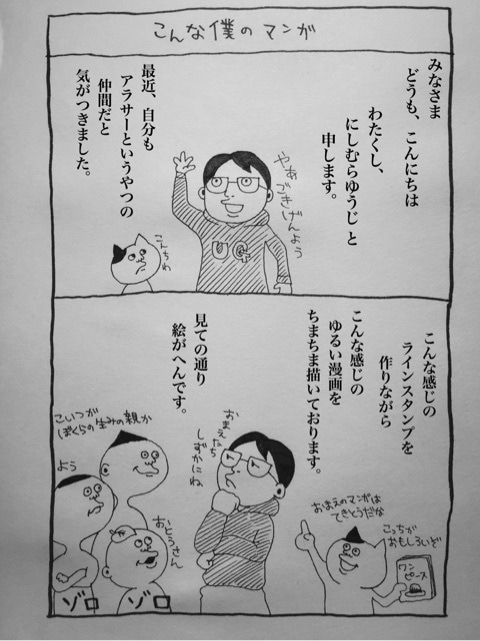 こんな僕のマンガ
みなさま
どうも、こんにちは
わたくし、
にしむらゆうじと
申します。
やあ
ごきげんよう
UG
最近、自分も
アラサーというやつの
仲間だと
気がつきました。
こんちわ
こんな感じの
ラインスタンプを
作りながら
こんな感じの
ゆるい漫画を
ちまちま描いております。
見ての通り
絵がへんです。
おまえのマンガは
てきとうだな
こっちが
おもしろいぞ
ワン
ピース
おまえたち
しずかにね
こいつが
ぼくらの生みの親か
よう
おとうさん
ゾロ
ゾロ